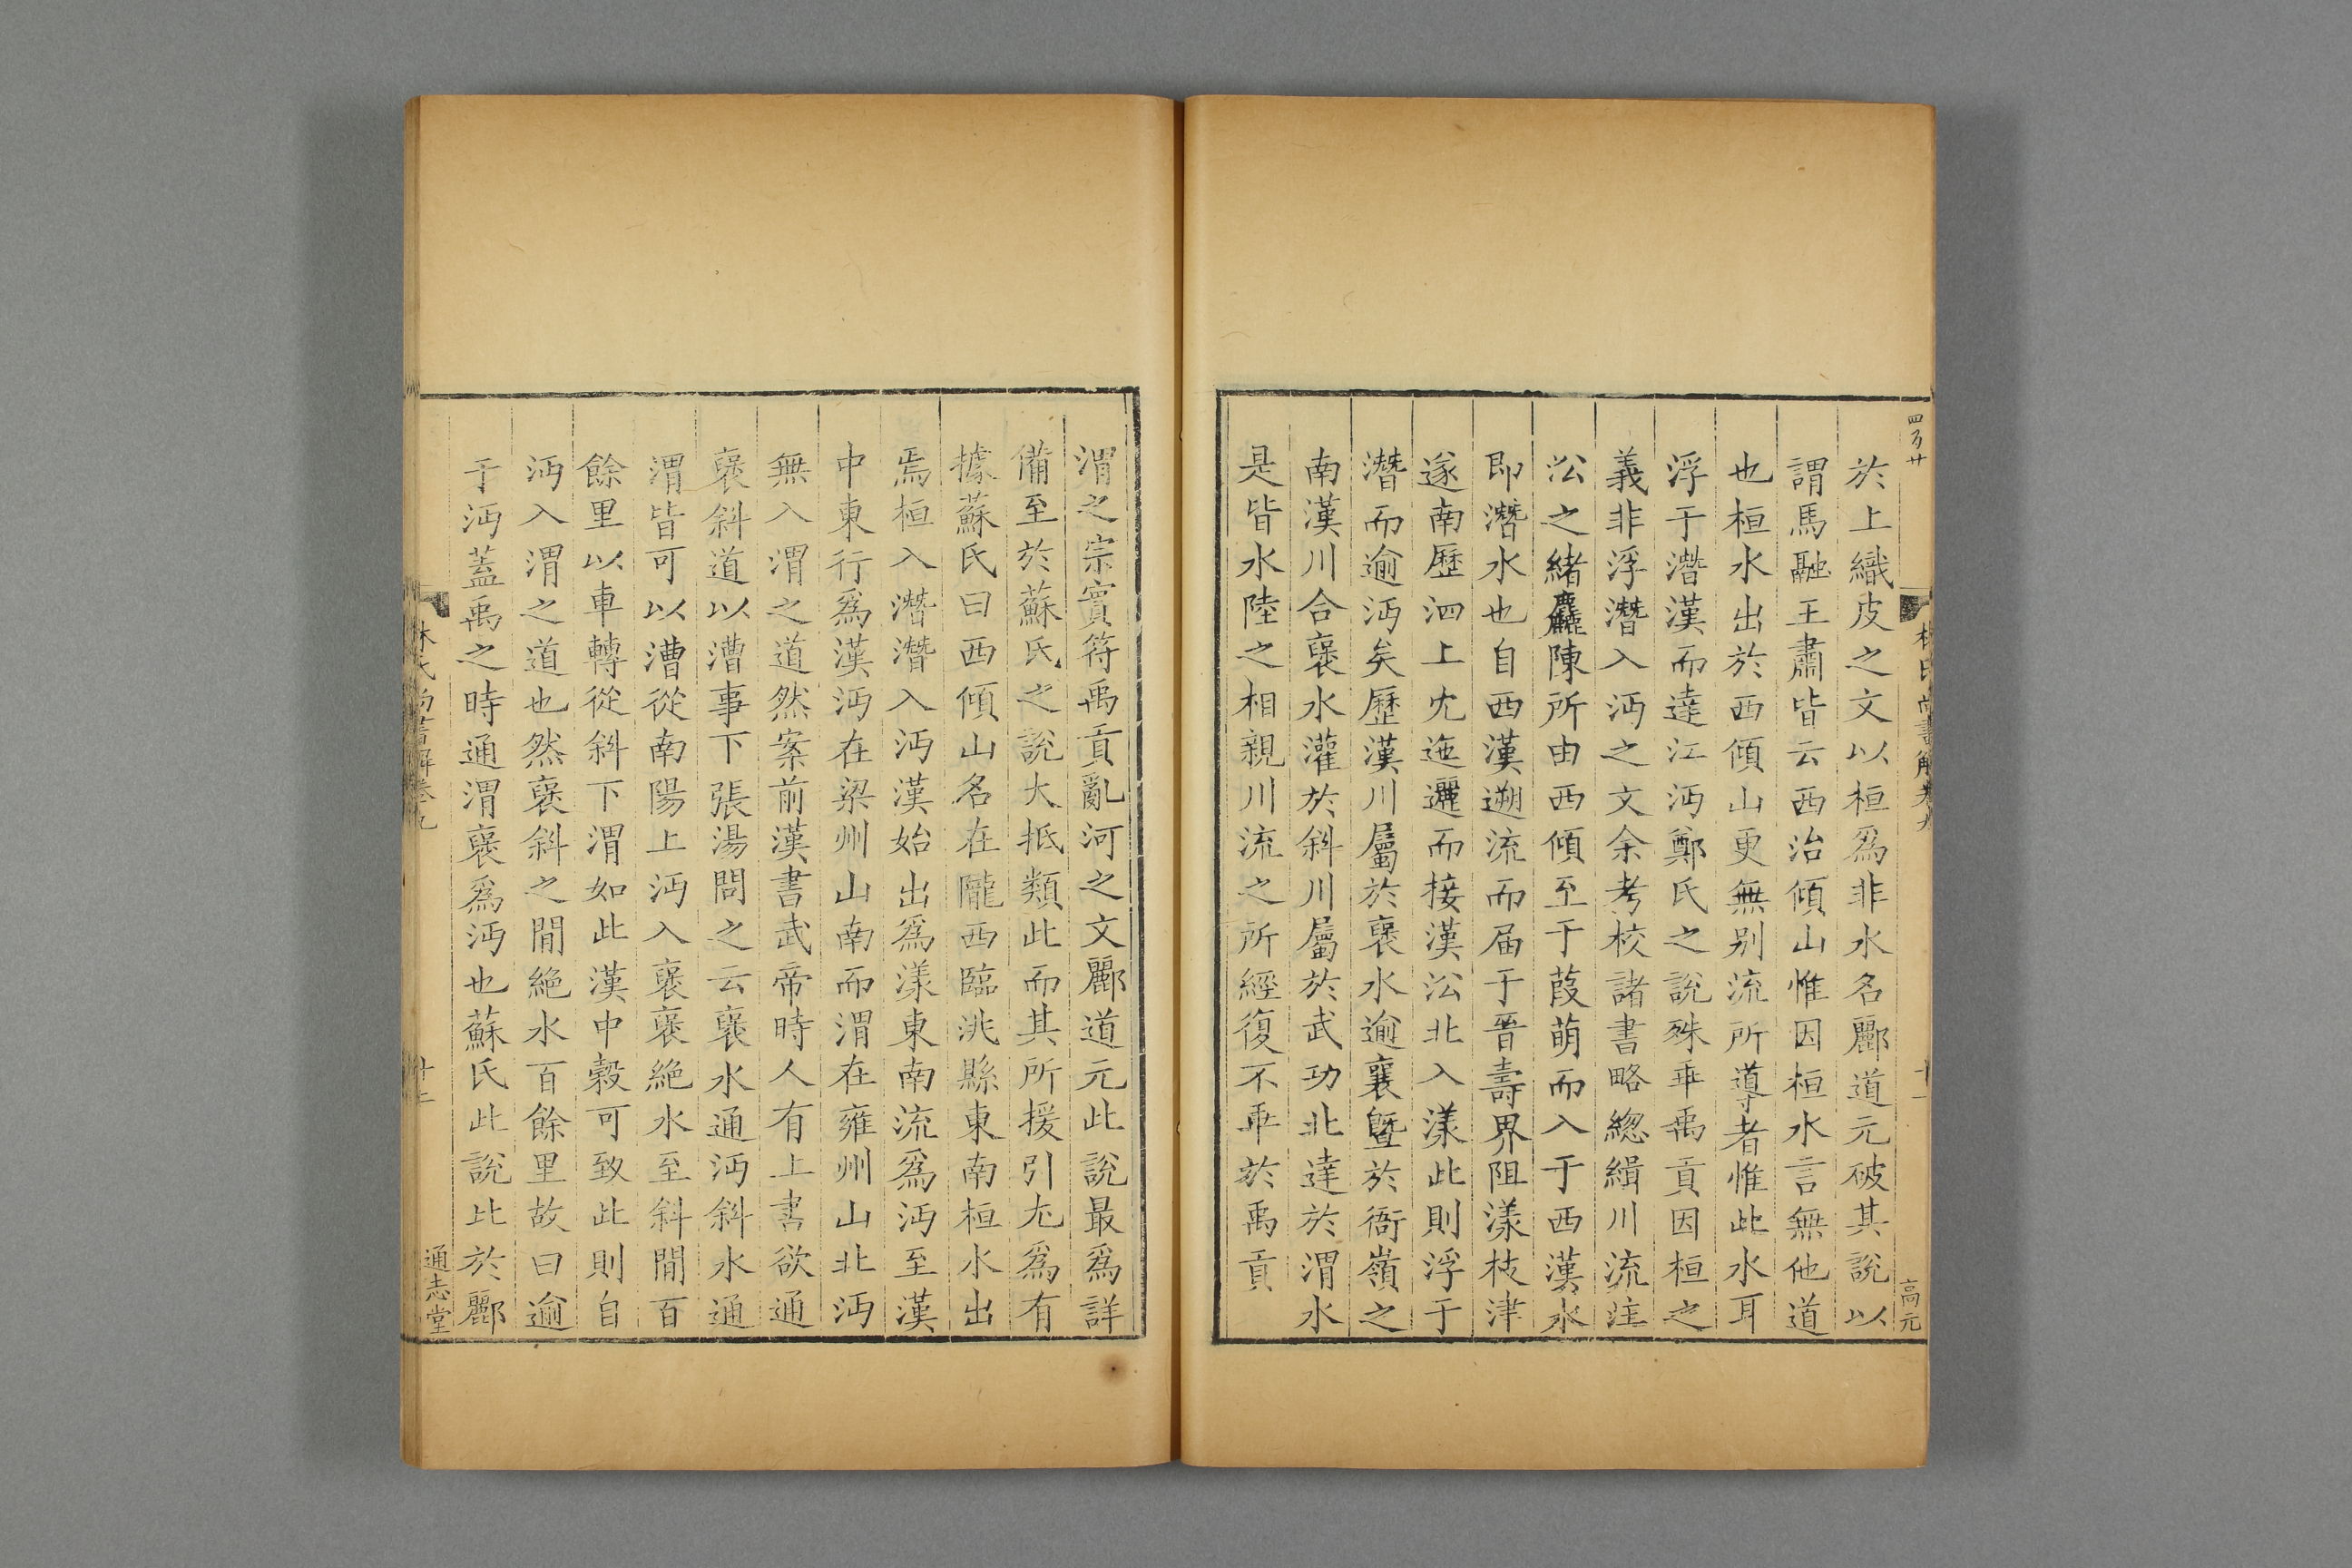 四百廿
林氏尚書解卷九
十一
高元
於上織皮之文以桓爲非水名酈道元破其說以
謂馬融王肅皆云西治傾山惟因桓水言無他道
也桓水出於西傾山更無别流所導者惟此水耳
浮于潛漢而達江沔鄭氏之說殊乖禹貢因桓之
義非浮潛入沔之文余考校諸書略緫緝川流注
㳂之緒麤陳所由西傾至于葭萌而入于西漢水
即潛水也自西漢遡流而届于晉壽界阻漾枝津
遂南歷沔上宂迤邐而接漢㳂北入漾此則浮于
潛而逾沔矣歷漢川屬於褒水逾襄曁於衙嶺之
南漢川合褒水灌於斜川屬於武功北達於渭水
是皆水陸之相親川流之所經復不乖於禹貢
渭之宗實符禹貢亂河之文酈道元此說最爲詳
備至於蘇氏之說大抵類此而其所援引尤爲有
據蘇氏曰西傾山名在隴西臨洮縣東南桓水出
焉桓入潛潛入沔漢始出爲漾東南流爲沔至漢
中東行爲漢沔在梁州山南而渭在雍州山北沔
無入渭之道然案前漢書武帝時人有上書欲通
褒斜道以漕事下張湯問之云褒水通沔斜水通
渭皆可以漕從南陽上沔入褒褒絶水至斜間百
餘里以車轉從斜下渭如此漢中穀可致此則自
沔入渭之道也然褒斜之間絶水百餘里故曰逾
于沔蓋禹之時通渭褒爲沔也蘇氏此說比於酈
林氏尚書解卷九
十二
通志堂